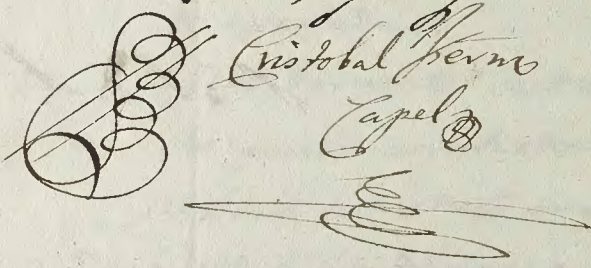 Cristobal Hern
Capel